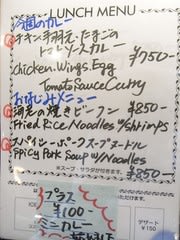 LUNCH MENU
今週のカレー
チキン手羽元・たまごの
トマトソースカレー
¥750-
Chicken.Wings.Egg
Tomato Sauce Curry
おなじみメニュー
海老の焼きビーフン ¥850-
Fried Rice Noodles w/shrimps
スパイシーポークスープヌードル
Spicy Pork Soup w/Noodles
¥850-
プラス
¥100-
ミニカレー
デザート
¥150